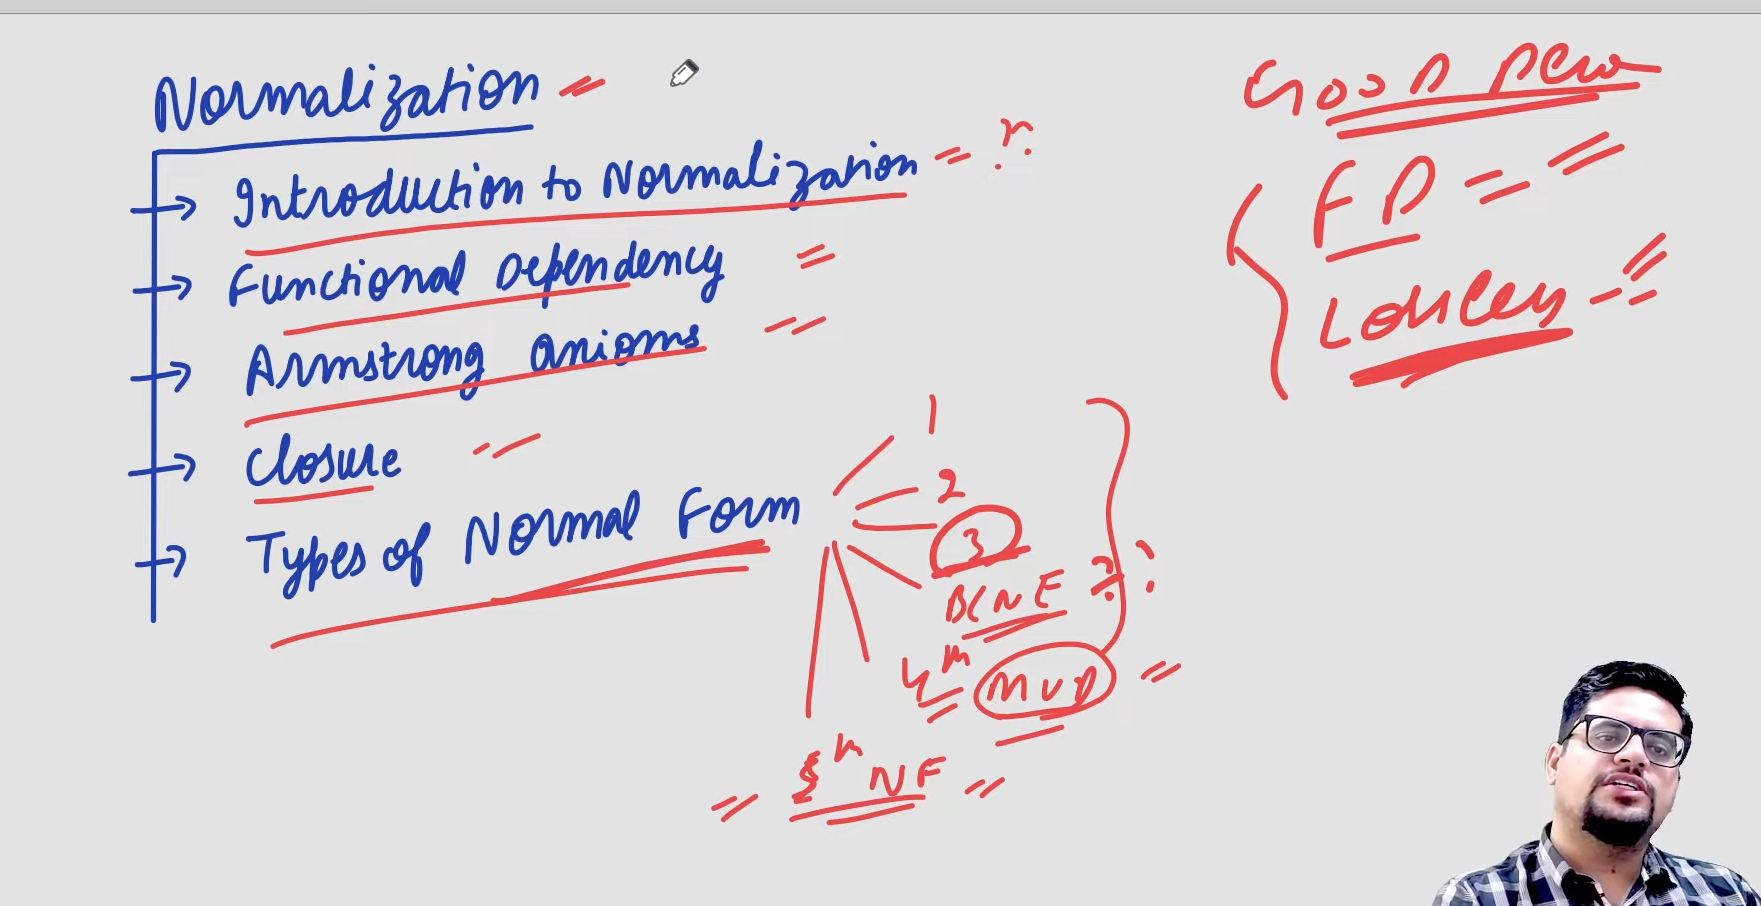 Normalization
Introduction to Normalization
Functional Dependency
Armstrong anioms
Closure
Types of Normal Form
1
2
3
BCNF ??
4th MVD
5th NF
GOOD
FD
Lossless